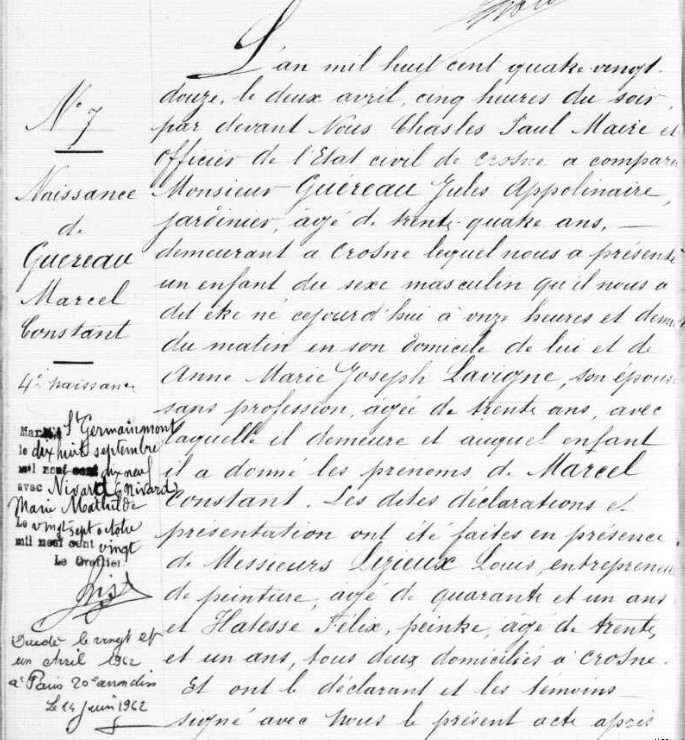 N° 7
Naissance
de
Guéreau
Marcel
Constant
4e naissance
Marié à St Germainmont
le dix huit septembre
mil neuf cent dix neuf
avec Nivard
Marie Mathilde
Le vingt sept octobre
mil neuf cent vingt
Le Greffier
Décédé le vingt et
un Avril 1962
à Paris 20e arrondis
Le 14 juin 1962
L'an mil huit cent quatre vingt
douze, le deux avril, cinq heures du soir,
par devant Nous Chasles Paul Maire et
Officier de l'Etat civil de Crosne a comparu
Monsieur Guéreau Jules Appolinaire,
jardinier, âgé de trente quatre ans,
demeurant à Crosne lequel nous a présenté
un enfant du sexe masculin qu'il nous a
dit être né cejourd'hui à onze heures et demi
du matin en son domicile de lui et de
Anne Marie Joseph Lavigne, son épouse
sans profession, âgée de trente ans, avec
laquelle il demeure et auquel enfant
il a donné les prénoms de Marcel
Constant. Les dites déclarations et
présentation ont été faites en présence
de Messieurs Lizieux Louis, entrepreneur
de peinture, âgé de quarante et un ans
et Hatesse Félix, peintre, âgé de trente
et un ans, tous deux domiciliés à Crosne.
Et ont le déclarant et les témoins
signé avec Nous le présent acte après